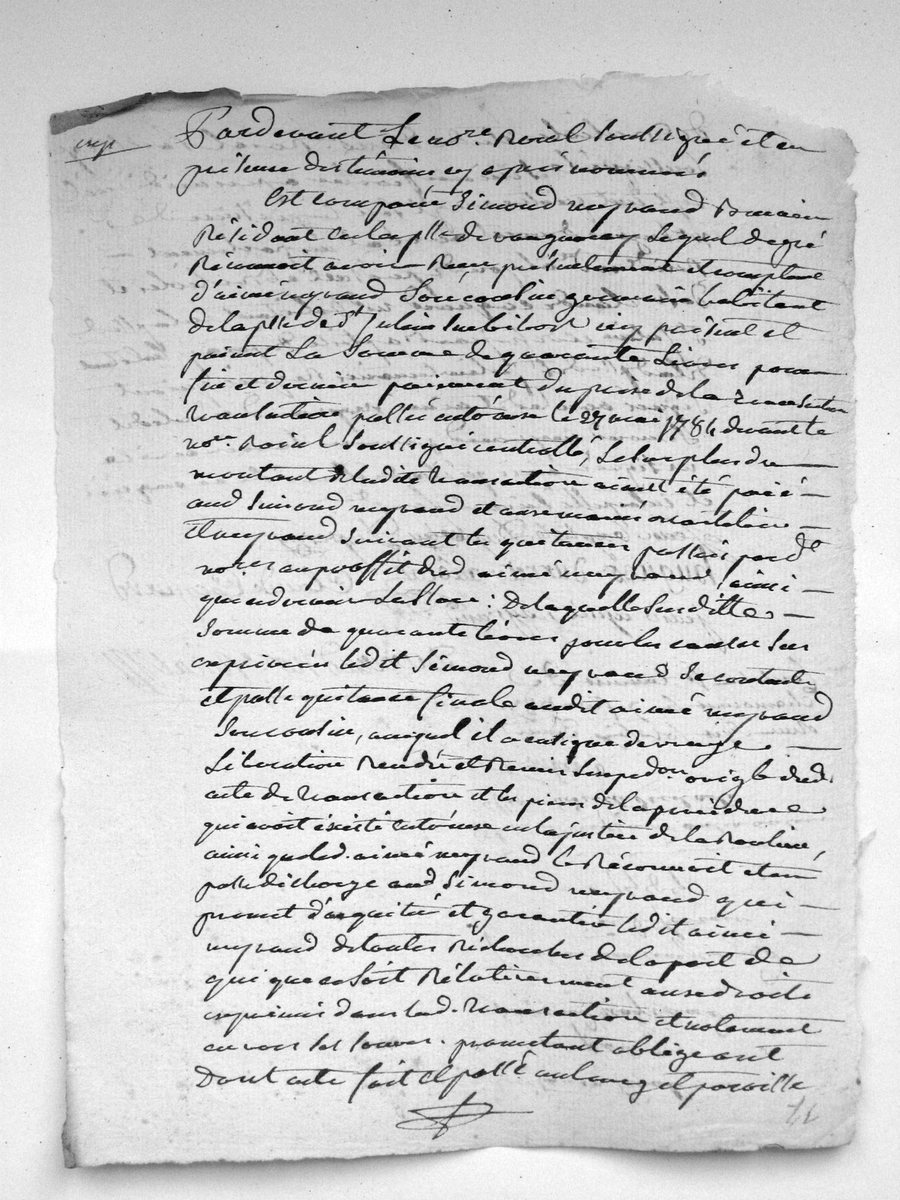 exp
Pardevant Le nore. Roial Soussigné et en
présence des témoins cy apres nommés
Est comparu Simond neyrand Romain
Résidant en la psse de vaugneray Lequel de gré
Reconnoit avoir Recu présentement et comptant
d'aimé neyrand Son cousin germain habitant
de la psse de St Julien Sur bibost icy présent et
paiant La Somme de quarante Livres pour
fin et dernier paiement du prix de la
transaction passée entr'eux le 27 mai 1784 devant le
nore. Roial Soussigné controllé, Le Surplus du
montant de ladite transaction aiant été paié
aud Simond neyrand et
neyrand Suivant les quitances passées par dt
nores au proffit dud aimé neyrand, ainsi
De laquelle Susditte
Somme de quarante livres pour les causes Sus
exprimées ledit Simond neyrand Se contente
et passe quitance finale audit aimé neyrand
Son cousin, auquel il a en Signe de vraye
Libération Rendu et Remis l'expedon orig. le dud.
acte de transaction et les pieces de la procédure
qui avoit éxisté entr'eux en la justice de la
ainsi que led. aimé neyrand le Reconnoit et en
passe décharge aud Simond neyrand qui
promet d'acquiter et garantir ledit aimé
neyrand de toutes Recherches de la part de
qui que ce Soit Rélativement aux droits
exprimés dans lad. transaction et notament
envers Ses Soeurs. promettant obligeant
Dont acte fait et passé au bourg et paroisse